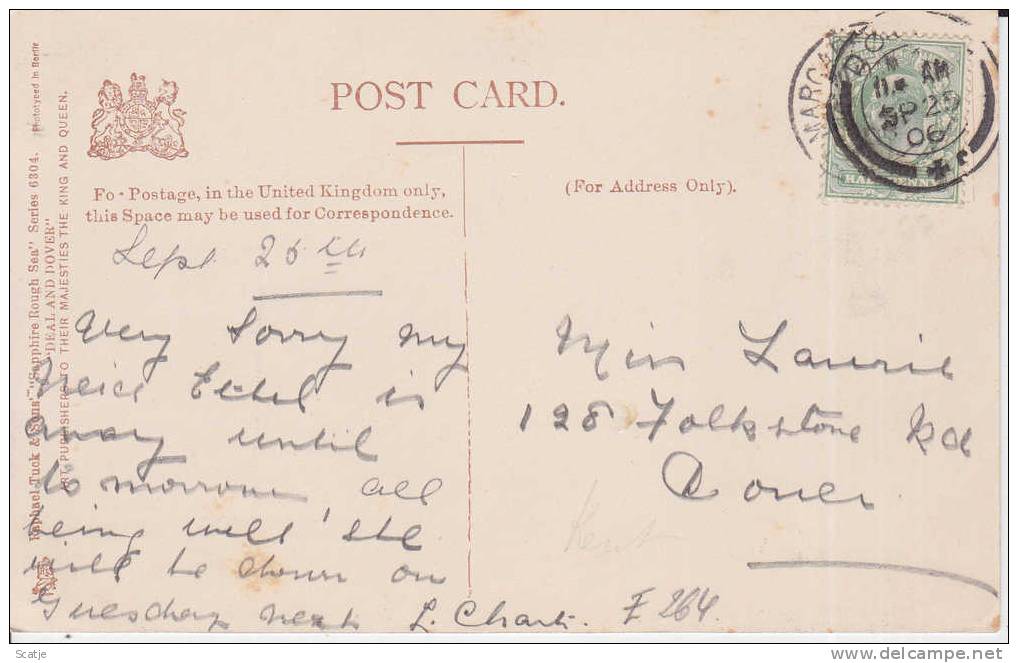 POST CARD.
Fo- Postage, in the United Kingdom only,
this Space may be used for Correspondence.
(For Address Only).
MARGA
DO
11. AM
SP 25
06
Sept 25th
Very Sorry my
Neice Ethel is
away until
tomorrow all
being well she
will be down on
Tuesday next L. Chart.
Miss Laurie
128 Folkstone Rd
Dover
Kent
E 264.
Raphael Tuck & Sons' "Sapphire Rough Sea" Series 6304. Phototyped in Berlin
"DEAL AND DOVER"
ART PUBLISHERS TO THEIR MAJESTIES THE KING AND QUEEN.
Scatje
delcampe.net